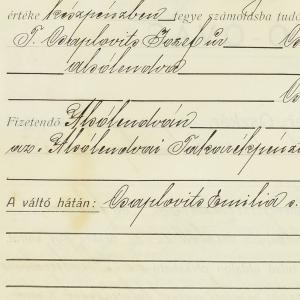 értéke készpénzben tegye számolásba tud
T. Csaplovits József úr
alsólendva
Fizetendő Alsólendván
az Alsólendvai Takarékpénz
A váltó hátán: Csaplovits Emilia s.